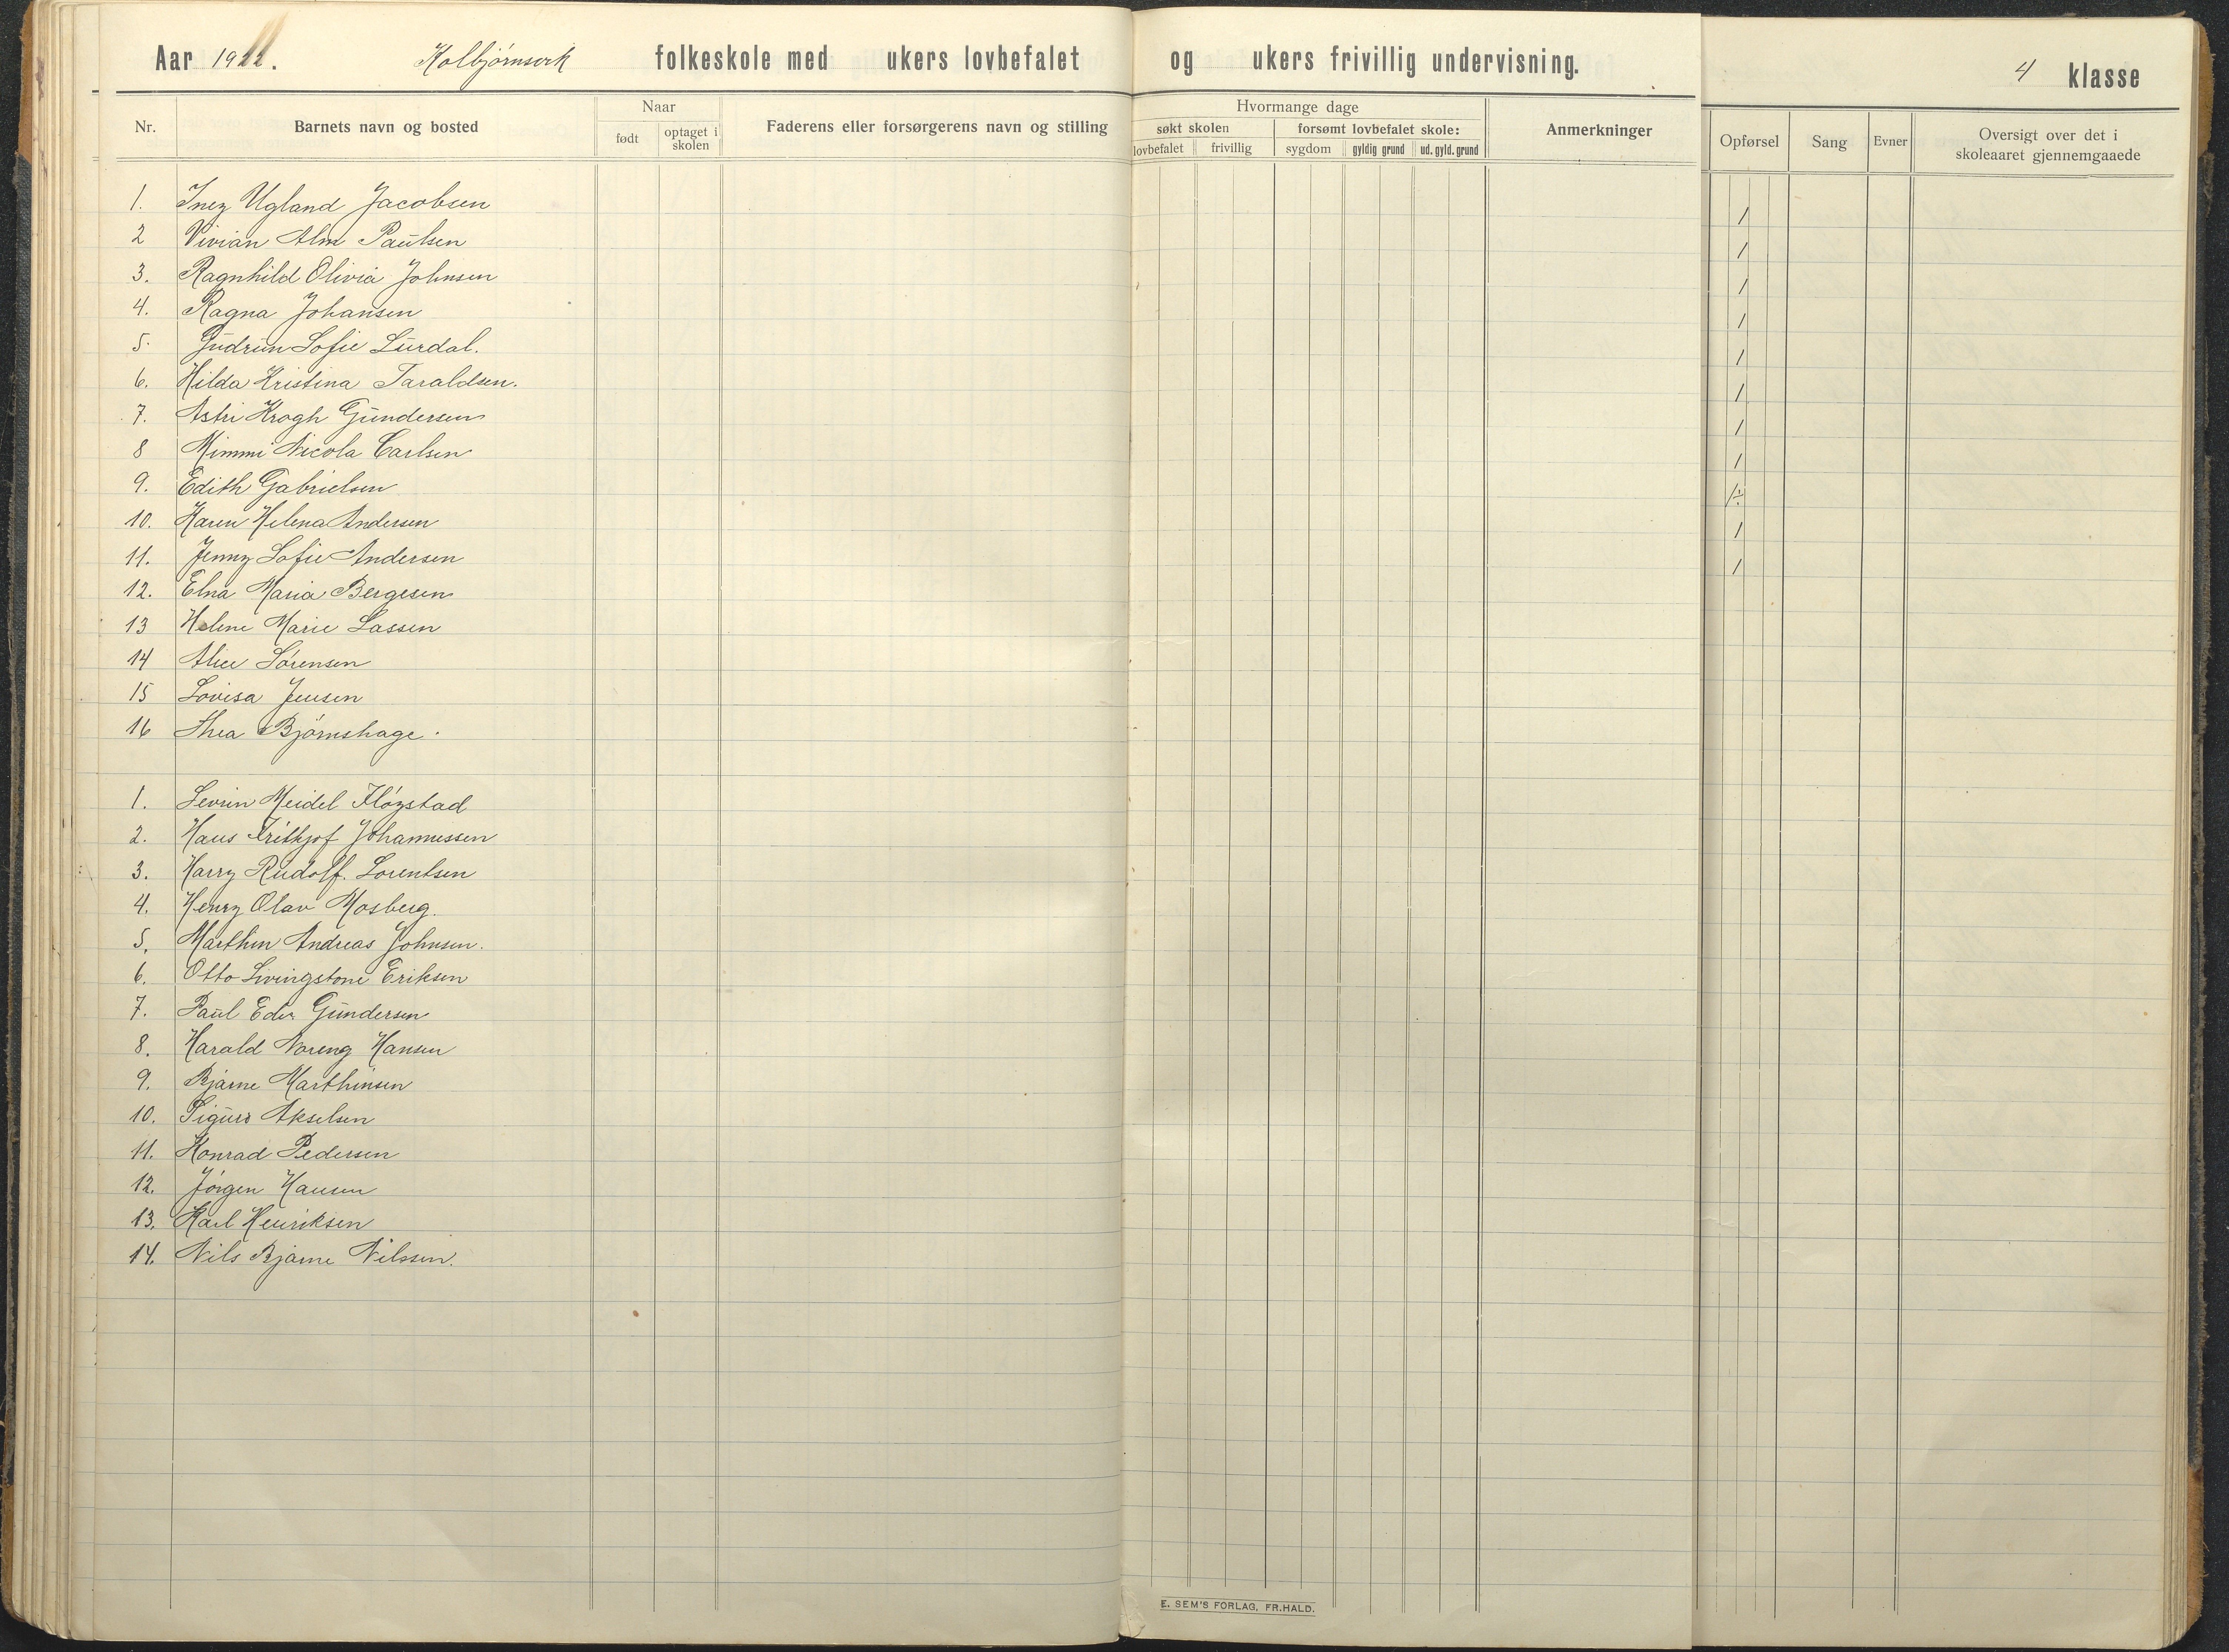 Aar 1922. Kolbjørnsvik folkeskole med ukers lovbefalet og ukers frivillig undervisning. 4 klasse
Nr. Barnets navn og bosted Naar født optaget i skolen Faderens eller forsørgerens navn og stilling Hvormange dage søkt skolen lovbefalet frivillig forsømt lovbefalet skole: sygdom gyldig grund ud. gyld. grund Anmerkninger Opførsel Sang Evner Oversigt over det i skoleaaret gjennemgaaede
1. Inez Ugland Jacobsen 1
2 Vivian Alm Paulsen 1
3. Ragnhild Olivia Johnsen 1
4. Ragna Johansen 1
5. Gudrun Sofie Lurdal. 1
6. Hilda Kristina Taraldsen. 1
7. Astri Krogh Gundersen 1
8 Mimmi Nicola Carlsen 1
9. Edith Gabrielsen 1÷
10. Karen Helena Andersen 1
11. Jenny Sofie Andersen 1
12. Elna Maria Bergesen
13 Helene Marie Lassen
14 Alice Sørensen
15 Lovisa Jensen
16 Thea Bjørnshage.
1. Sevrin Meidel Fløystad
2. Hans Fritkjof Johannessen
3. Harry Rudolf. Lorentsen
4. Henry Olav Mosberg.
5. Marthin Andreas Johnsen.
6. Otto Livingstone Eriksen
7. Paul Gundersen
8. Harald Noreng Hansen
9. Bjarne Marthinsen
10. Sigurd Akselsen
11. Konrad Pedersen
12. Jørgen Hansen
13. Karl Henriksen
14. Nils Bjarne Nilssen.
E. SEM'S FORLAG, FR.HALD.